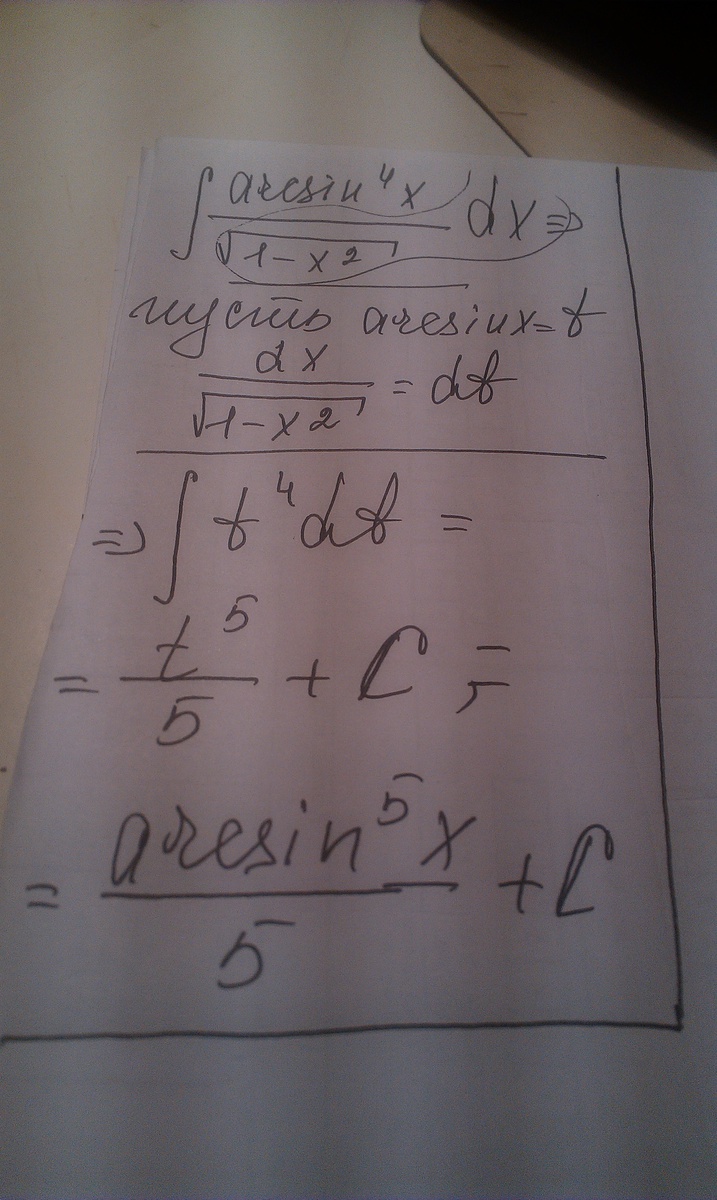 ∫ arcsin⁴x / √(1-x²) dx ⇒
пусть arcsinx = t
dx / √(1-x²) = dt
⇒ ∫ t⁴dt =
= t⁵ / 5 + C ; =
= arcsin⁵x / 5 + C